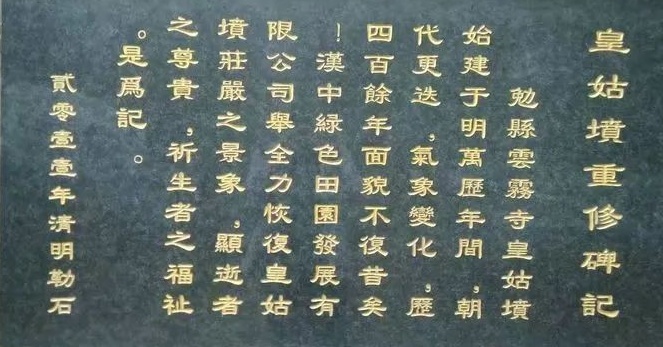 皇姑墳重修碑記
勉縣雲霧寺皇姑墳
始建于明萬歷年間，朝
代更迭，氣象變化，歷
四百餘年面貌不復昔矣
！漢中緑色田園發展有
限公司舉全力恢復皇姑
墳莊嚴之景象，顯逝者
之尊貴，祈生者之福祉
。是爲記。
貳零壹壹年清明勒石